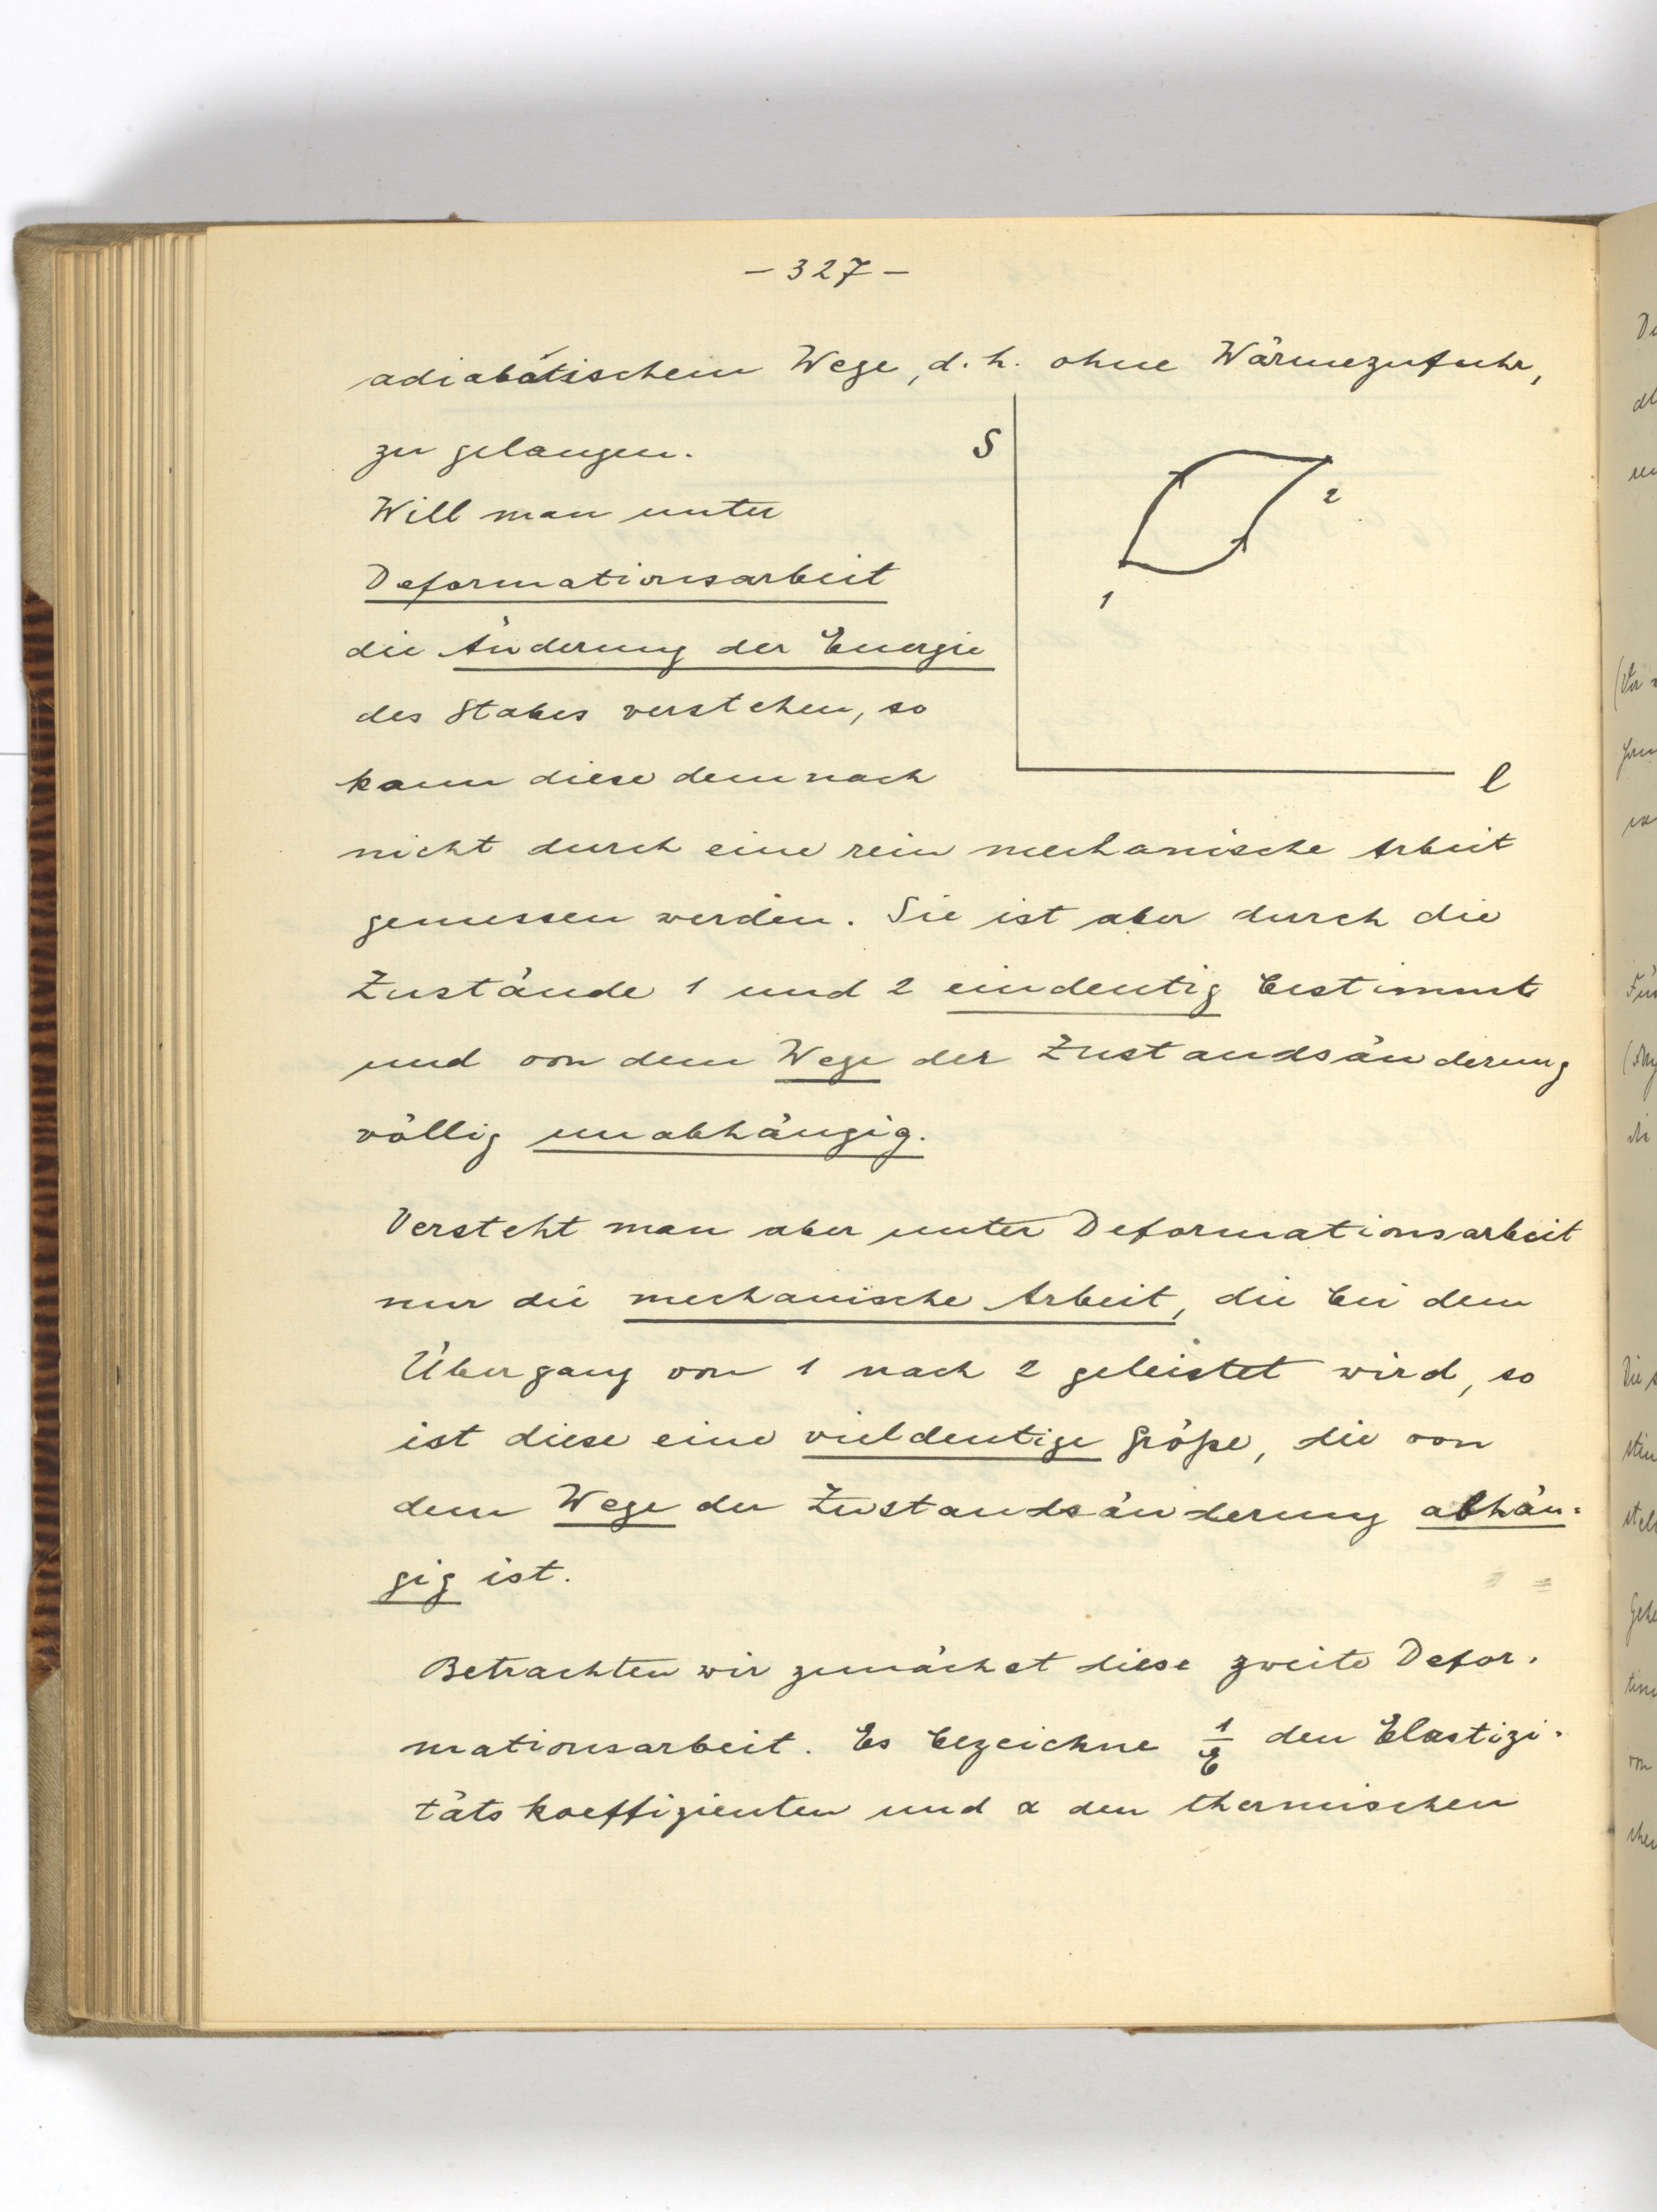 – 327 –
adiabatischem Wege, d. h. ohne Wärmezufuhr,
zu gelangen.
S
Will man unter
2
Deformationsarbeit
1
die Änderung der Energie
des Stabes verstehen, so
kann diese demnach
l
nicht durch eine rein mechanische Arbeit
gemessen werden. Sie ist aber durch die
Zustände 1 und 2 eindeutig bestimmt
und von dem Wege der Zustandsänderung
völlig unabhängig.
Versteht man aber unter Deformationsarbeit
nur die mechanische Arbeit, die bei dem
Übergang von 1 nach 2 geleistet wird, so
ist diese eine vieldeutige Größe, die von
dem Wege der Zustandsänderung abhän=
gig ist.
Betrachten wir zunächst diese zweite Defor-
mationsarbeit. Es bezeichne 1/E den Elastizi-
tätskoeffizienten und α den thermischen